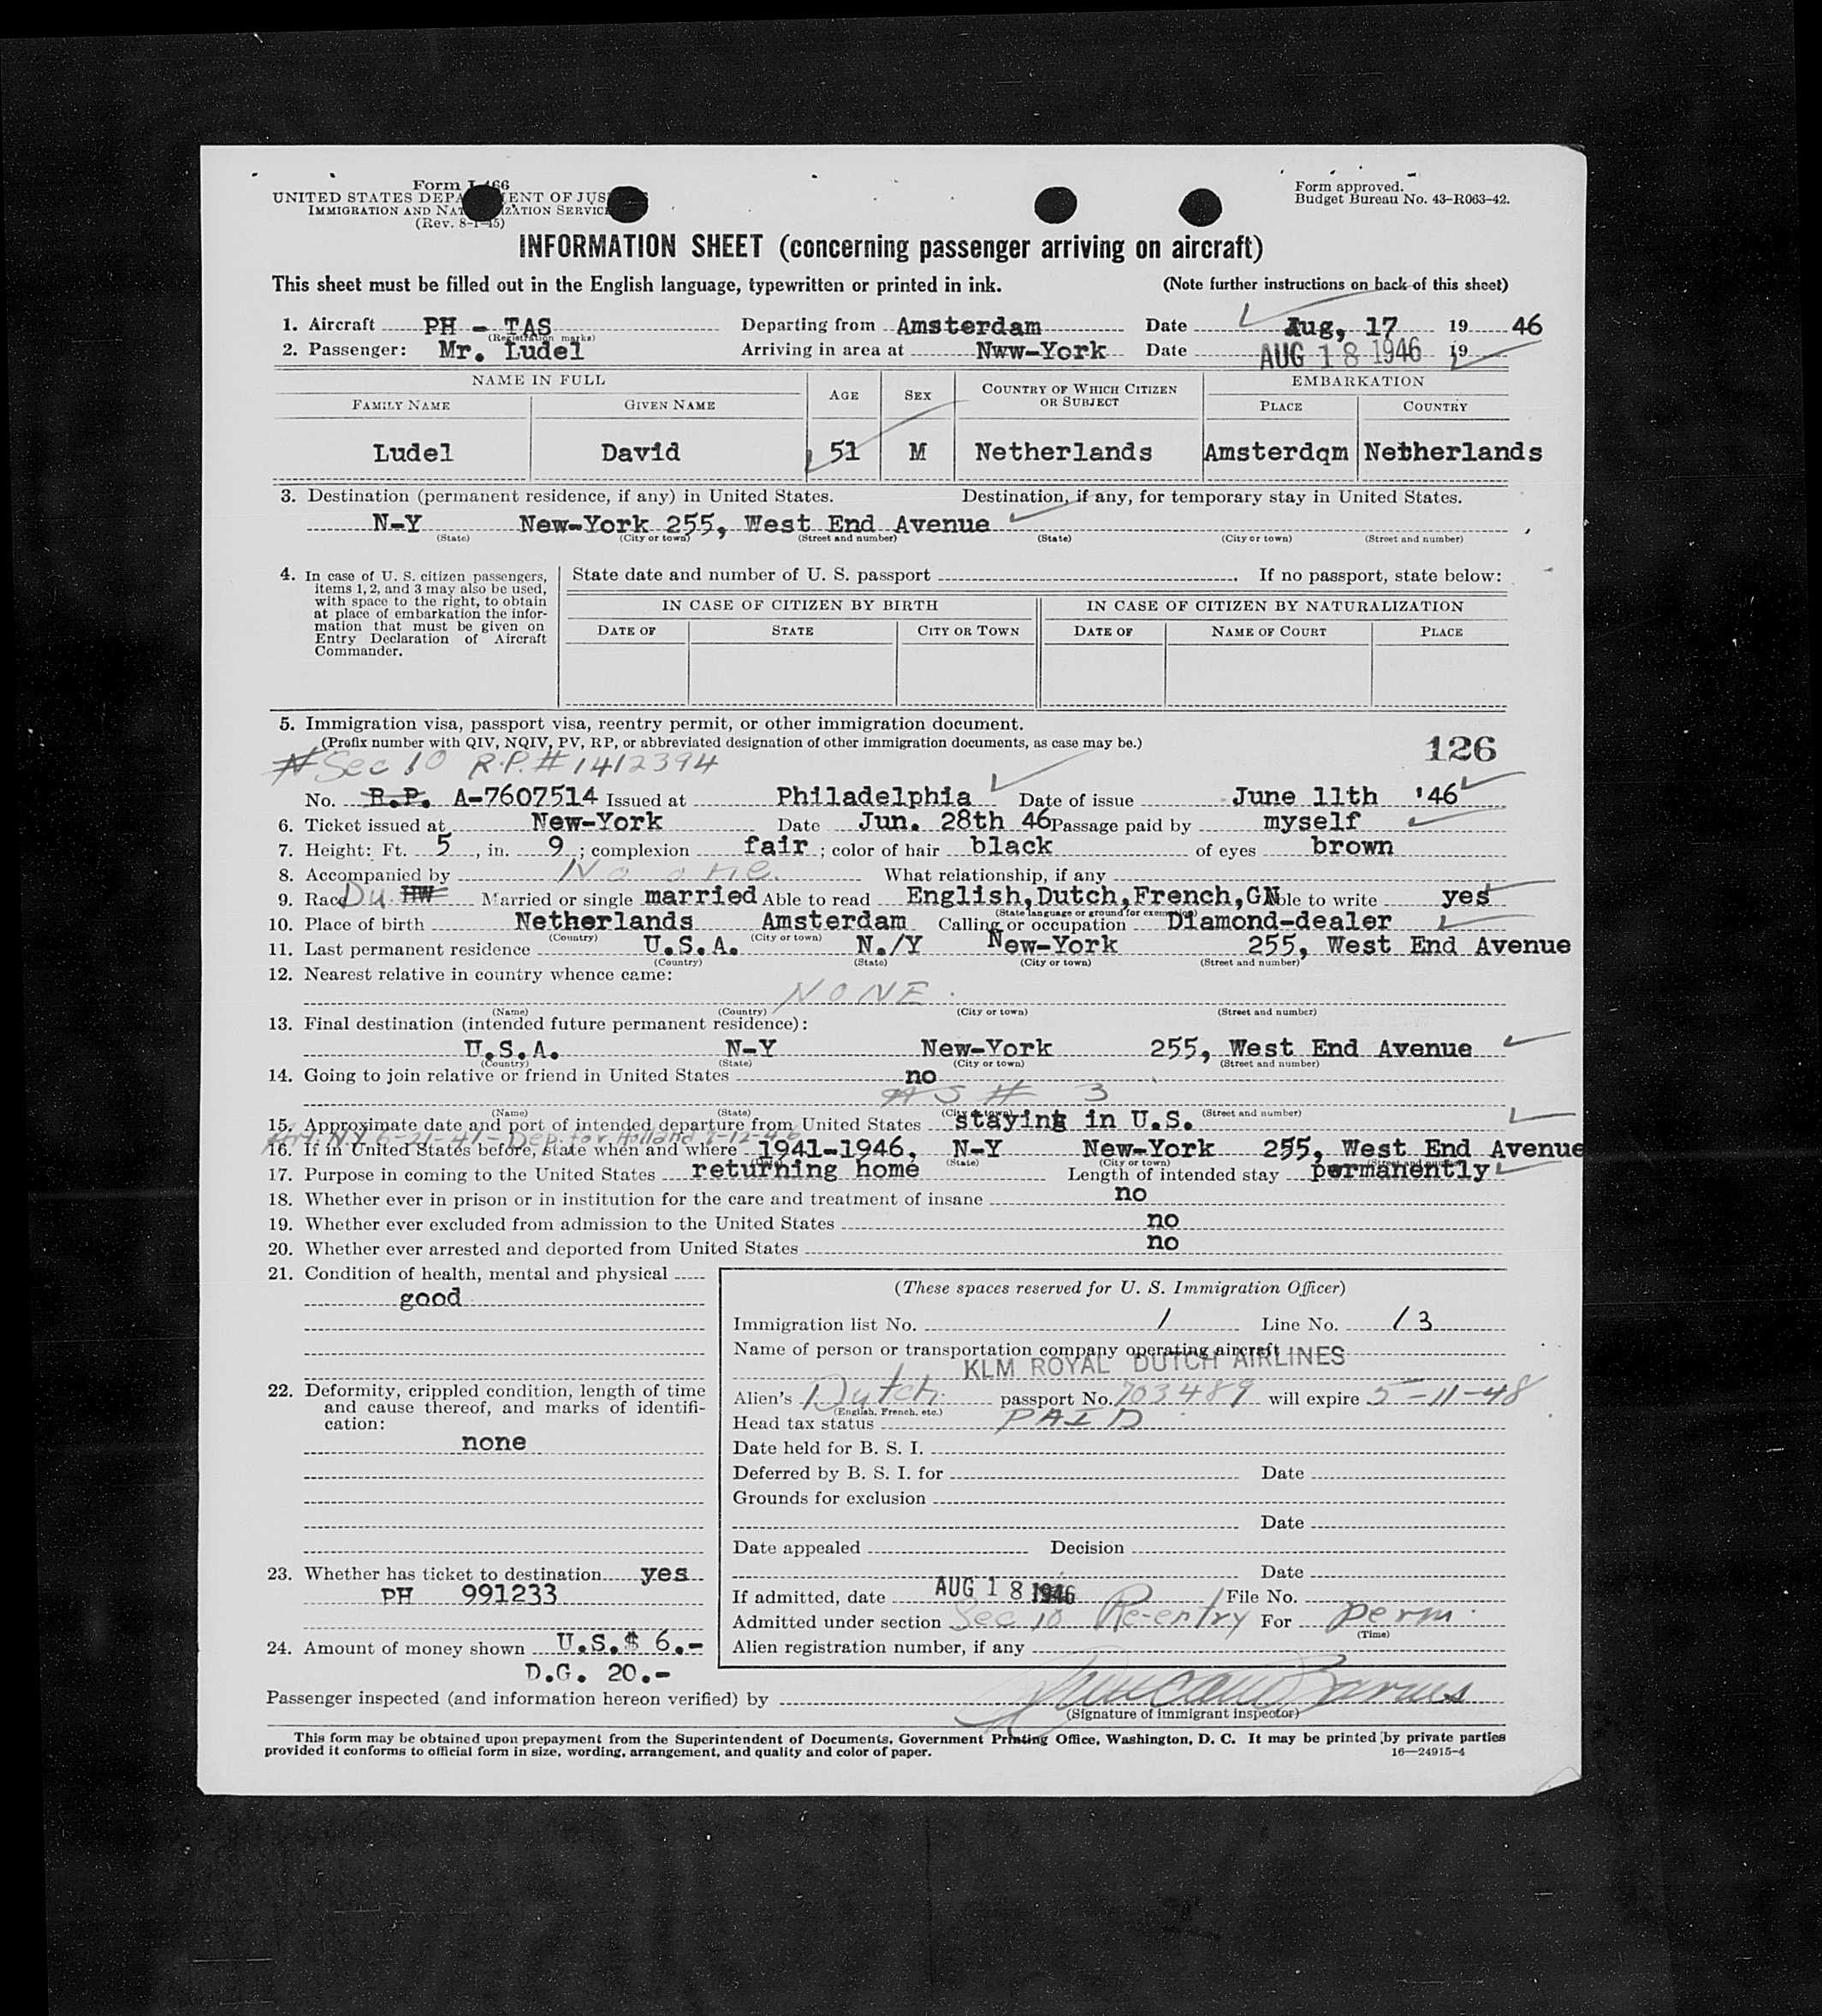 Form I-466
UNITED STATES DEPARTMENT OF JUSTICE
IMMIGRATION AND NATURALIZATION SERVICE
(Rev. 8-1-45)
Form approved.
Budget Bureau No. 43-R063-42.
INFORMATION SHEET (concerning passenger arriving on aircraft)
This sheet must be filled out in the English language, typewritten or printed in ink. (Note further instructions on back of this sheet)
1. Aircraft PH - TAS Departing from Amsterdam Date Aug, 17 19 46
(Registration marks)
2. Passenger: Mr. Ludel Arriving in area at Nww-York Date AUG 18 1946 19
NAME IN FULL AGE SEX COUNTRY OF WHICH CITIZEN OR SUBJECT EMBARKATION
FAMILY NAME GIVEN NAME PLACE COUNTRY
Ludel David 51 M Netherlands Amsterdqm Netherlands
3. Destination (permanent residence, if any) in United States. Destination, if any, for temporary stay in United States.
N-Y New-York 255, West End Avenue
(State) (City or town) (Street and number) (State) (City or town) (Street and number)
4. In case of U. S. citizen passengers, items 1, 2, and 3 may also be used, with space to the right, to obtain at place of embarkation the information that must be given on Entry Declaration of Aircraft Commander.
State date and number of U. S. passport . If no passport, state below:
IN CASE OF CITIZEN BY BIRTH IN CASE OF CITIZEN BY NATURALIZATION
DATE OF STATE CITY OR TOWN DATE OF NAME OF COURT PLACE
5. Immigration visa, passport visa, reentry permit, or other immigration document.
(Prefix number with QIV, NQIV, PV, RP, or abbreviated designation of other immigration documents, as case may be.)
126
Sec 10 R.P.# 1412394
No. R.P. A-7607514 Issued at Philadelphia Date of issue June 11th '46
6. Ticket issued at New-York Date Jun. 28th 46 Passage paid by myself
7. Height: Ft. 5, in. 9; complexion fair; color of hair black of eyes brown
8. Accompanied by No one. What relationship, if any
9. Race Du HW Married or single married Able to read English,Dutch,French,GN Able to write yes
(State language or ground for exemption)
10. Place of birth Netherlands Amsterdam Calling or occupation Diamond-dealer
(Country) (City or town)
11. Last permanent residence U.S.A. N./Y New-York 255, West End Avenue
(Country) (State) (City or town) (Street and number)
12. Nearest relative in country whence came:
NONE.
(Name) (Country) (City or town) (Street and number)
13. Final destination (intended future permanent residence):
U.S.A. N-Y New-York 255, West End Avenue
(Country) (State) (City or town) (Street and number)
14. Going to join relative or friend in United States no
AS # 3
(Name) (State) (City or town) (Street and number)
15. Approximate date and port of intended departure from United States staying in U.S.
Arr. N.Y 6-21-41 - Dep. for Holland 7-12-46
16. If in United States before, state when and where 1941-1946, N-Y New-York 255, West End Avenue
(State) (City or town) (Street and number)
17. Purpose in coming to the United States returning home Length of intended stay permanently
18. Whether ever in prison or in institution for the care and treatment of insane no
19. Whether ever excluded from admission to the United States no
20. Whether ever arrested and deported from United States no
21. Condition of health, mental and physical
good
22. Deformity, crippled condition, length of time and cause thereof, and marks of identification:
none
23. Whether has ticket to destination yes
PH 991233
24. Amount of money shown U.S.$ 6.-
D.G. 20.-
(These spaces reserved for U. S. Immigration Officer)
Immigration list No. 1 Line No. 13
Name of person or transportation company operating aircraft
KLM ROYAL DUTCH AIRLINES
Alien's Dutch passport No. 703489 will expire 5-11-48
(English, French, etc.)
Head tax status PAID
Date held for B. S. I.
Deferred by B. S. I. for Date
Grounds for exclusion
Date
Date appealed Decision
Date
If admitted, date AUG 18 1946 File No.
Admitted under section Sec 10 Re-entry For perm.
(Time)
Alien registration number, if any
Passenger inspected (and information hereon verified) by Duncan Barnes
(Signature of immigrant inspector)
This form may be obtained upon prepayment from the Superintendent of Documents, Government Printing Office, Washington, D. C. It may be printed by private parties
provided it conforms to official form in size, wording, arrangement, and quality and color of paper. 16—24915-4